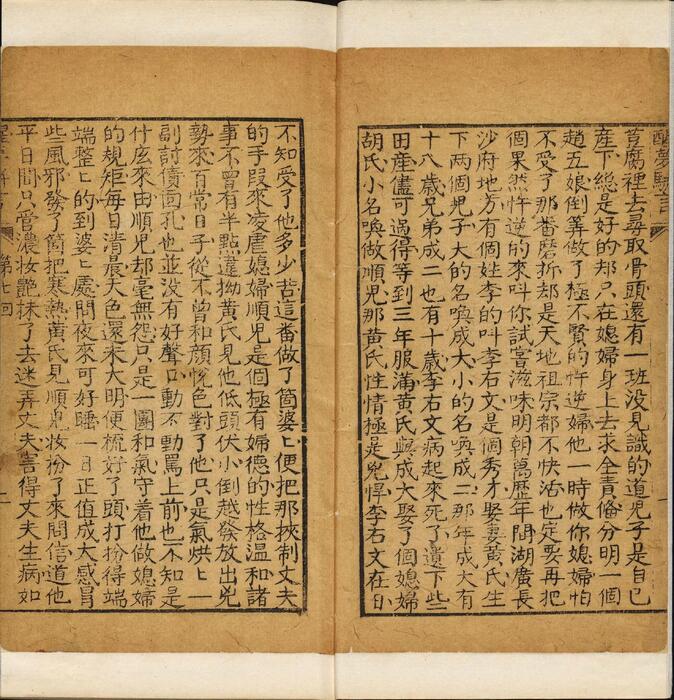 醒夢駢言
荳腐裡去尋取骨頭還有一班没見識的道兒子是自已
産下縂是好的却只在媳婦身上去求全責俻分明一個
趙五娘倒筭做了極不賢的忤逆婦他一時做你媳婦怕
不受了那畨磨折却是天地祖宗都不快活也定娶再把
個果然忤逆的來呌你試嘗滋味明朝萬歷年間湖廣長
沙府地方有個姓李的呌李右文是個秀才娶妻黄氏生
下两個兒子大的名喚成大小的名喚成二那年成大有
十八歲兄弟成二也有十歲李右文病起來死了遺下些
田産儘可過得等到三年服滿黄氏與成大娶了個媳婦
胡氏小名喚做順兒那黄氏性情極是兇悍李右文在日
不知受了他多少苦這畨做了箇婆匕便把那挾制丈夫
的手段來凌虐媳婦順兒是個極有婦德的性格温和諸
事不曾有半點違拗黄氏見他低頭伏小倒越發放出兇
勢來百常日子從不曾和顔悅色對了他只是氣烘匕一
副討債面孔也並没有好聲口動不動罵上前也不知是
什庅來由順兒却毫無怨只是一團和氣守着他做媳婦
的規矩每日清晨天色還未大明便梳好了頭打扮得端
端整匕的到婆匕處問夜來可好睡一日正值成大感冒
些風邪發了箇把寒熱黄氏見順兒妝扮了來問信道他
平日間只管濃妝艶抹了去迷弄丈夫害得丈夫生病如
第七回